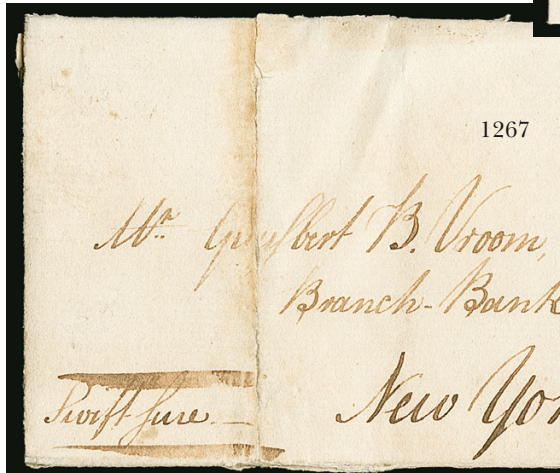 1267
Mr. Guysbert B. Vroom,
Branch-Bank
New Yor
Swift-sure